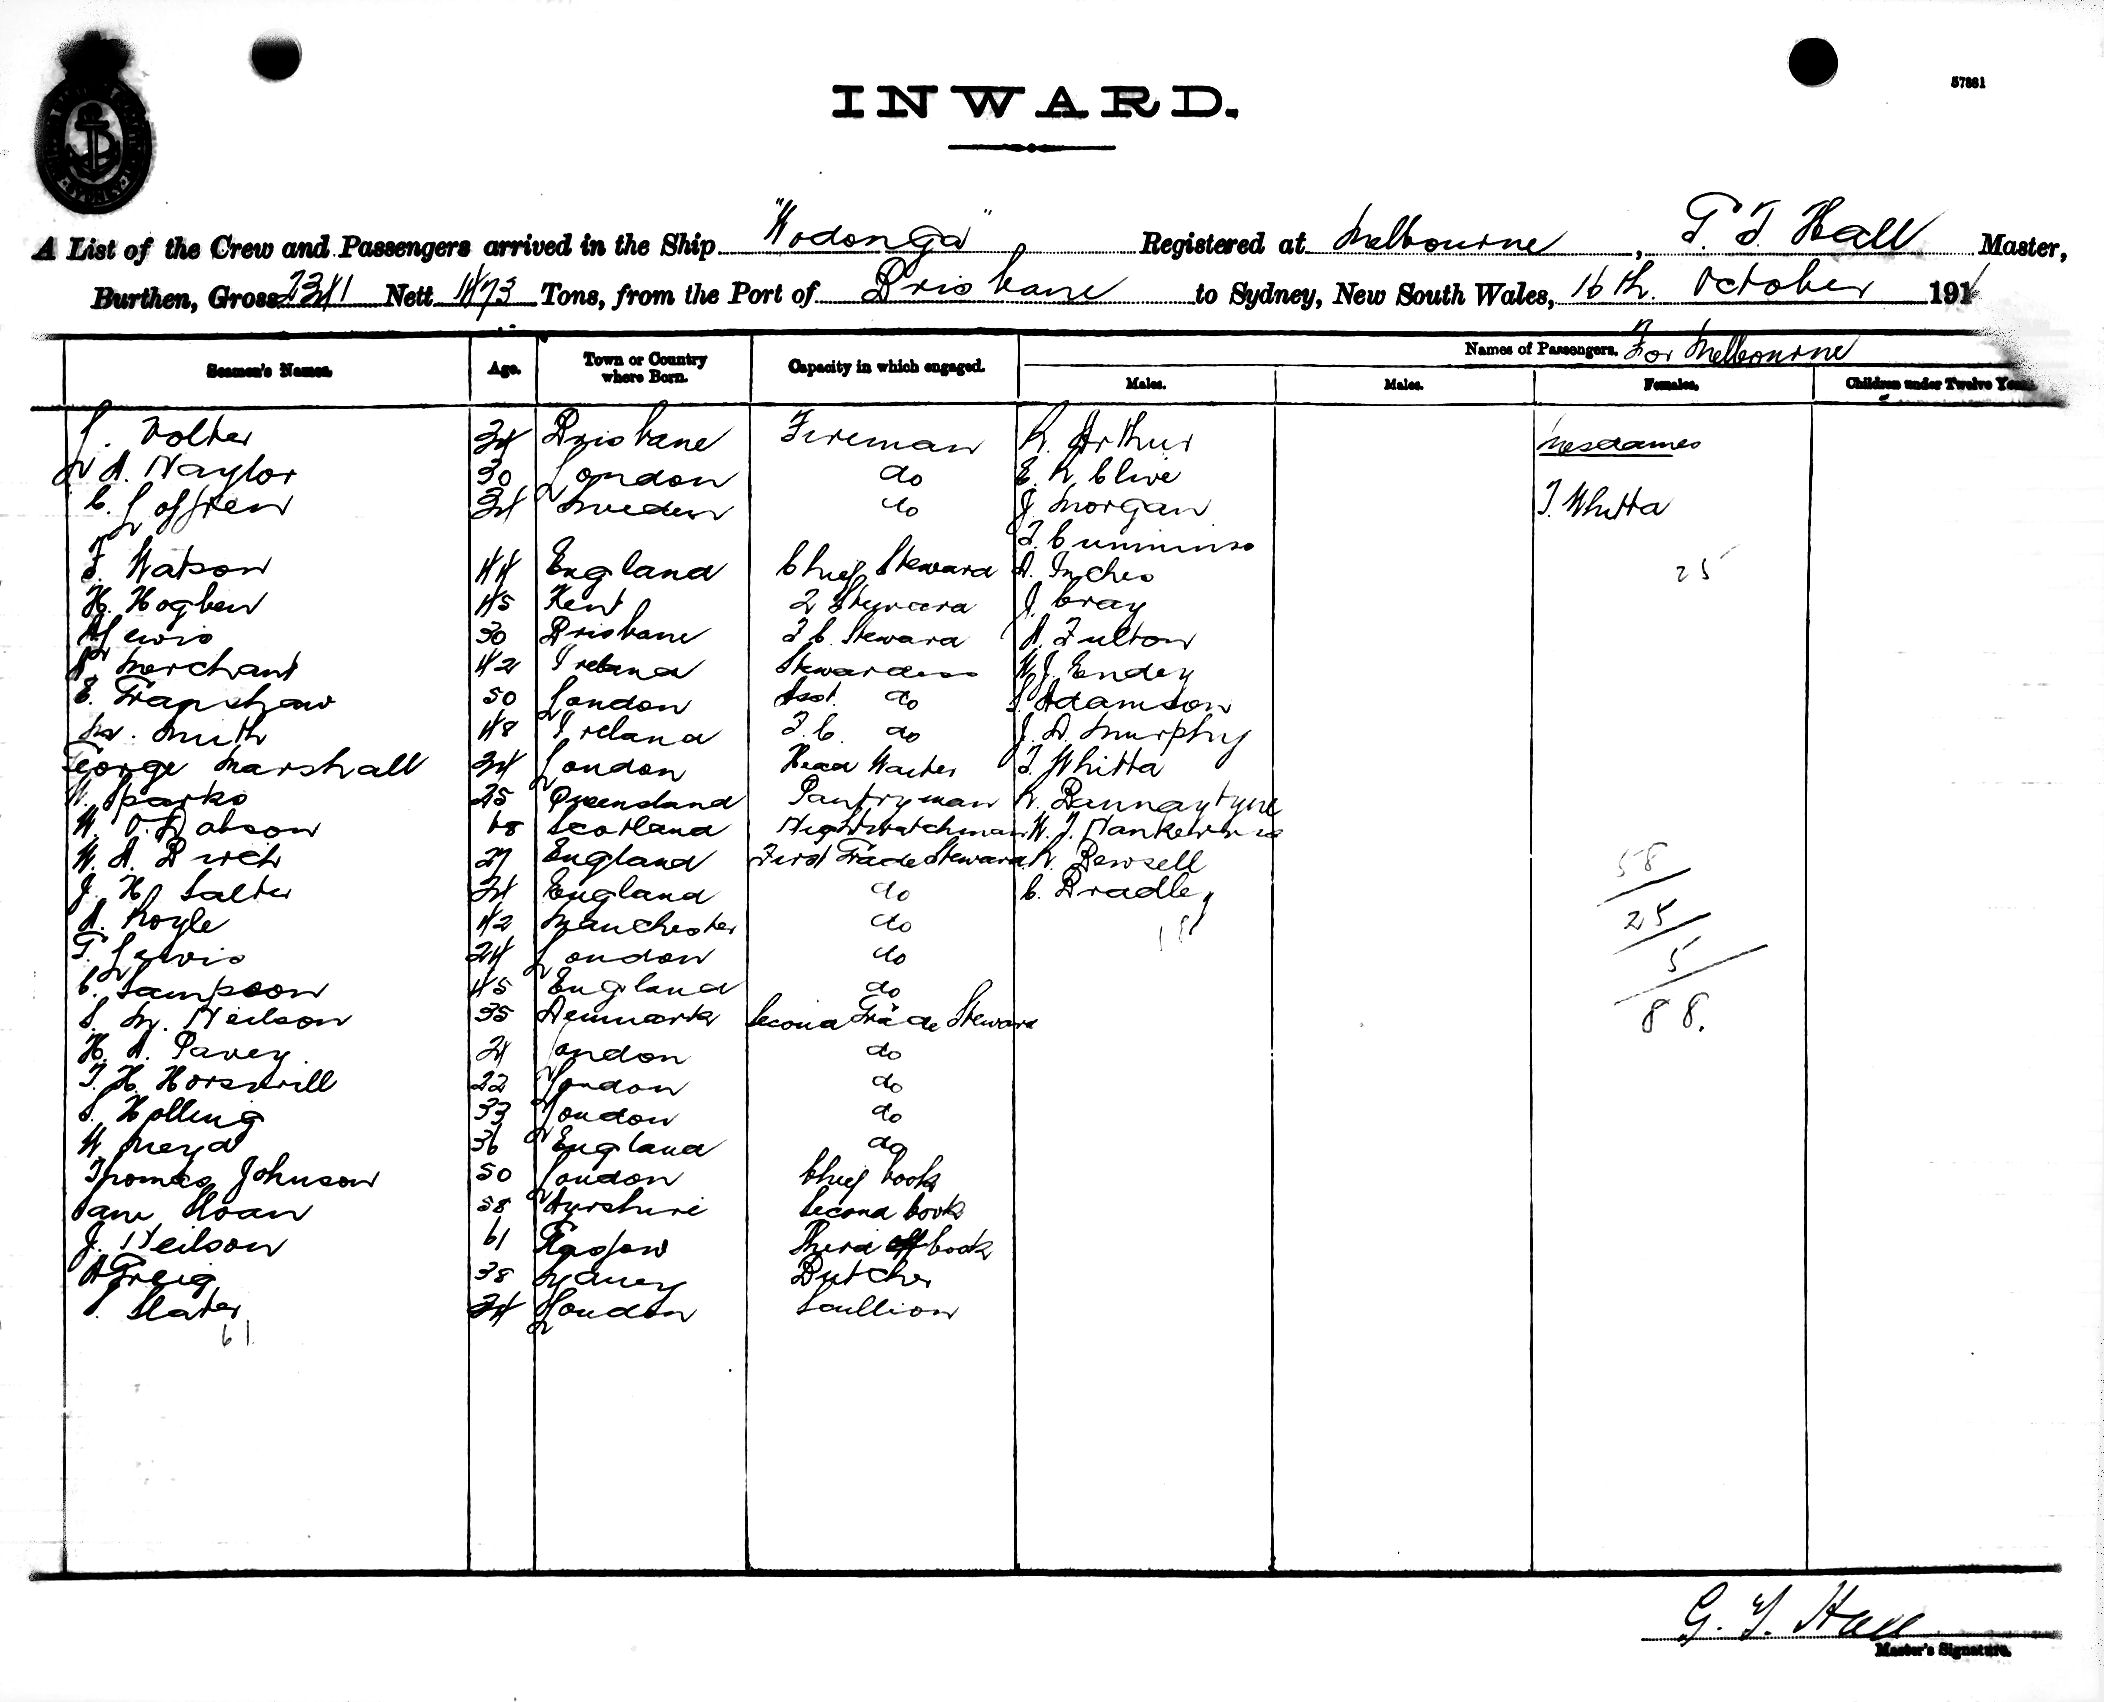 57881
INWARD.
A List of the Crew and Passengers arrived in the Ship "Wodonga" Registered at Melbourne, G. T. Hall Master,
Burthen, Gross 2341 Nett 1473 Tons, from the Port of Brisbane to Sydney, New South Wales, 16th October 191
Seamen's Names. Age. Town or Country where Born. Capacity in which engaged. Names of Passengers. For Melbourne
Males. Males. Females. Children under Twelve Years
Volter 34 Brisbane Fireman R. Arthur Mesdames
A. Naylor 30 London do E. R Clive
C. Loffren 34 Sweden do J. Morgan T. Whitta
T. Cummins
F. Watson 44 England Chief Steward A. Inches 25
H. Hogben 45 Kent 2 Steward J. Gray
Lewis 30 Brisbane F. C. Steward A. Fulton
A Merchant 42 Ireland Stewardess W. J. Endey
E. Trapshaw 50 London Asst. do S. Adamson
M. Smith 48 Ireland F. C. do J. A. Murphy
George Marshall 34 London Head Waiter T. Whitta
Sparks 25 Queensland Pantryman R. Bannaytyne
W. O. Dobson 48 Scotland Nightwatchman W. J.
W. A. Birch 27 England First Trade Steward R. Bewsell 58
J. H. Salter 24 England do C. Bradley
A. Royle 42 Manchester do 18 25
T. Lewis 24 London do 5
C. Sampson 45 England do
S. M. Neilson 35 Denmark Second Trade Steward 88.
H. A. Pavey. 21 London do
T. H. Horswill 22 London do
S. Holling 33 London do
W. 36 England do
Thomas Johnson 50 London Chief Cook
Sam Sloan 58 Ayrshire Second Cook
J. Neilson 61 Glasgow Third Cook
A Greig 38 Sydney Butcher
Slater 34 London Scullion
61
G. T. Hall
Master's Signature.